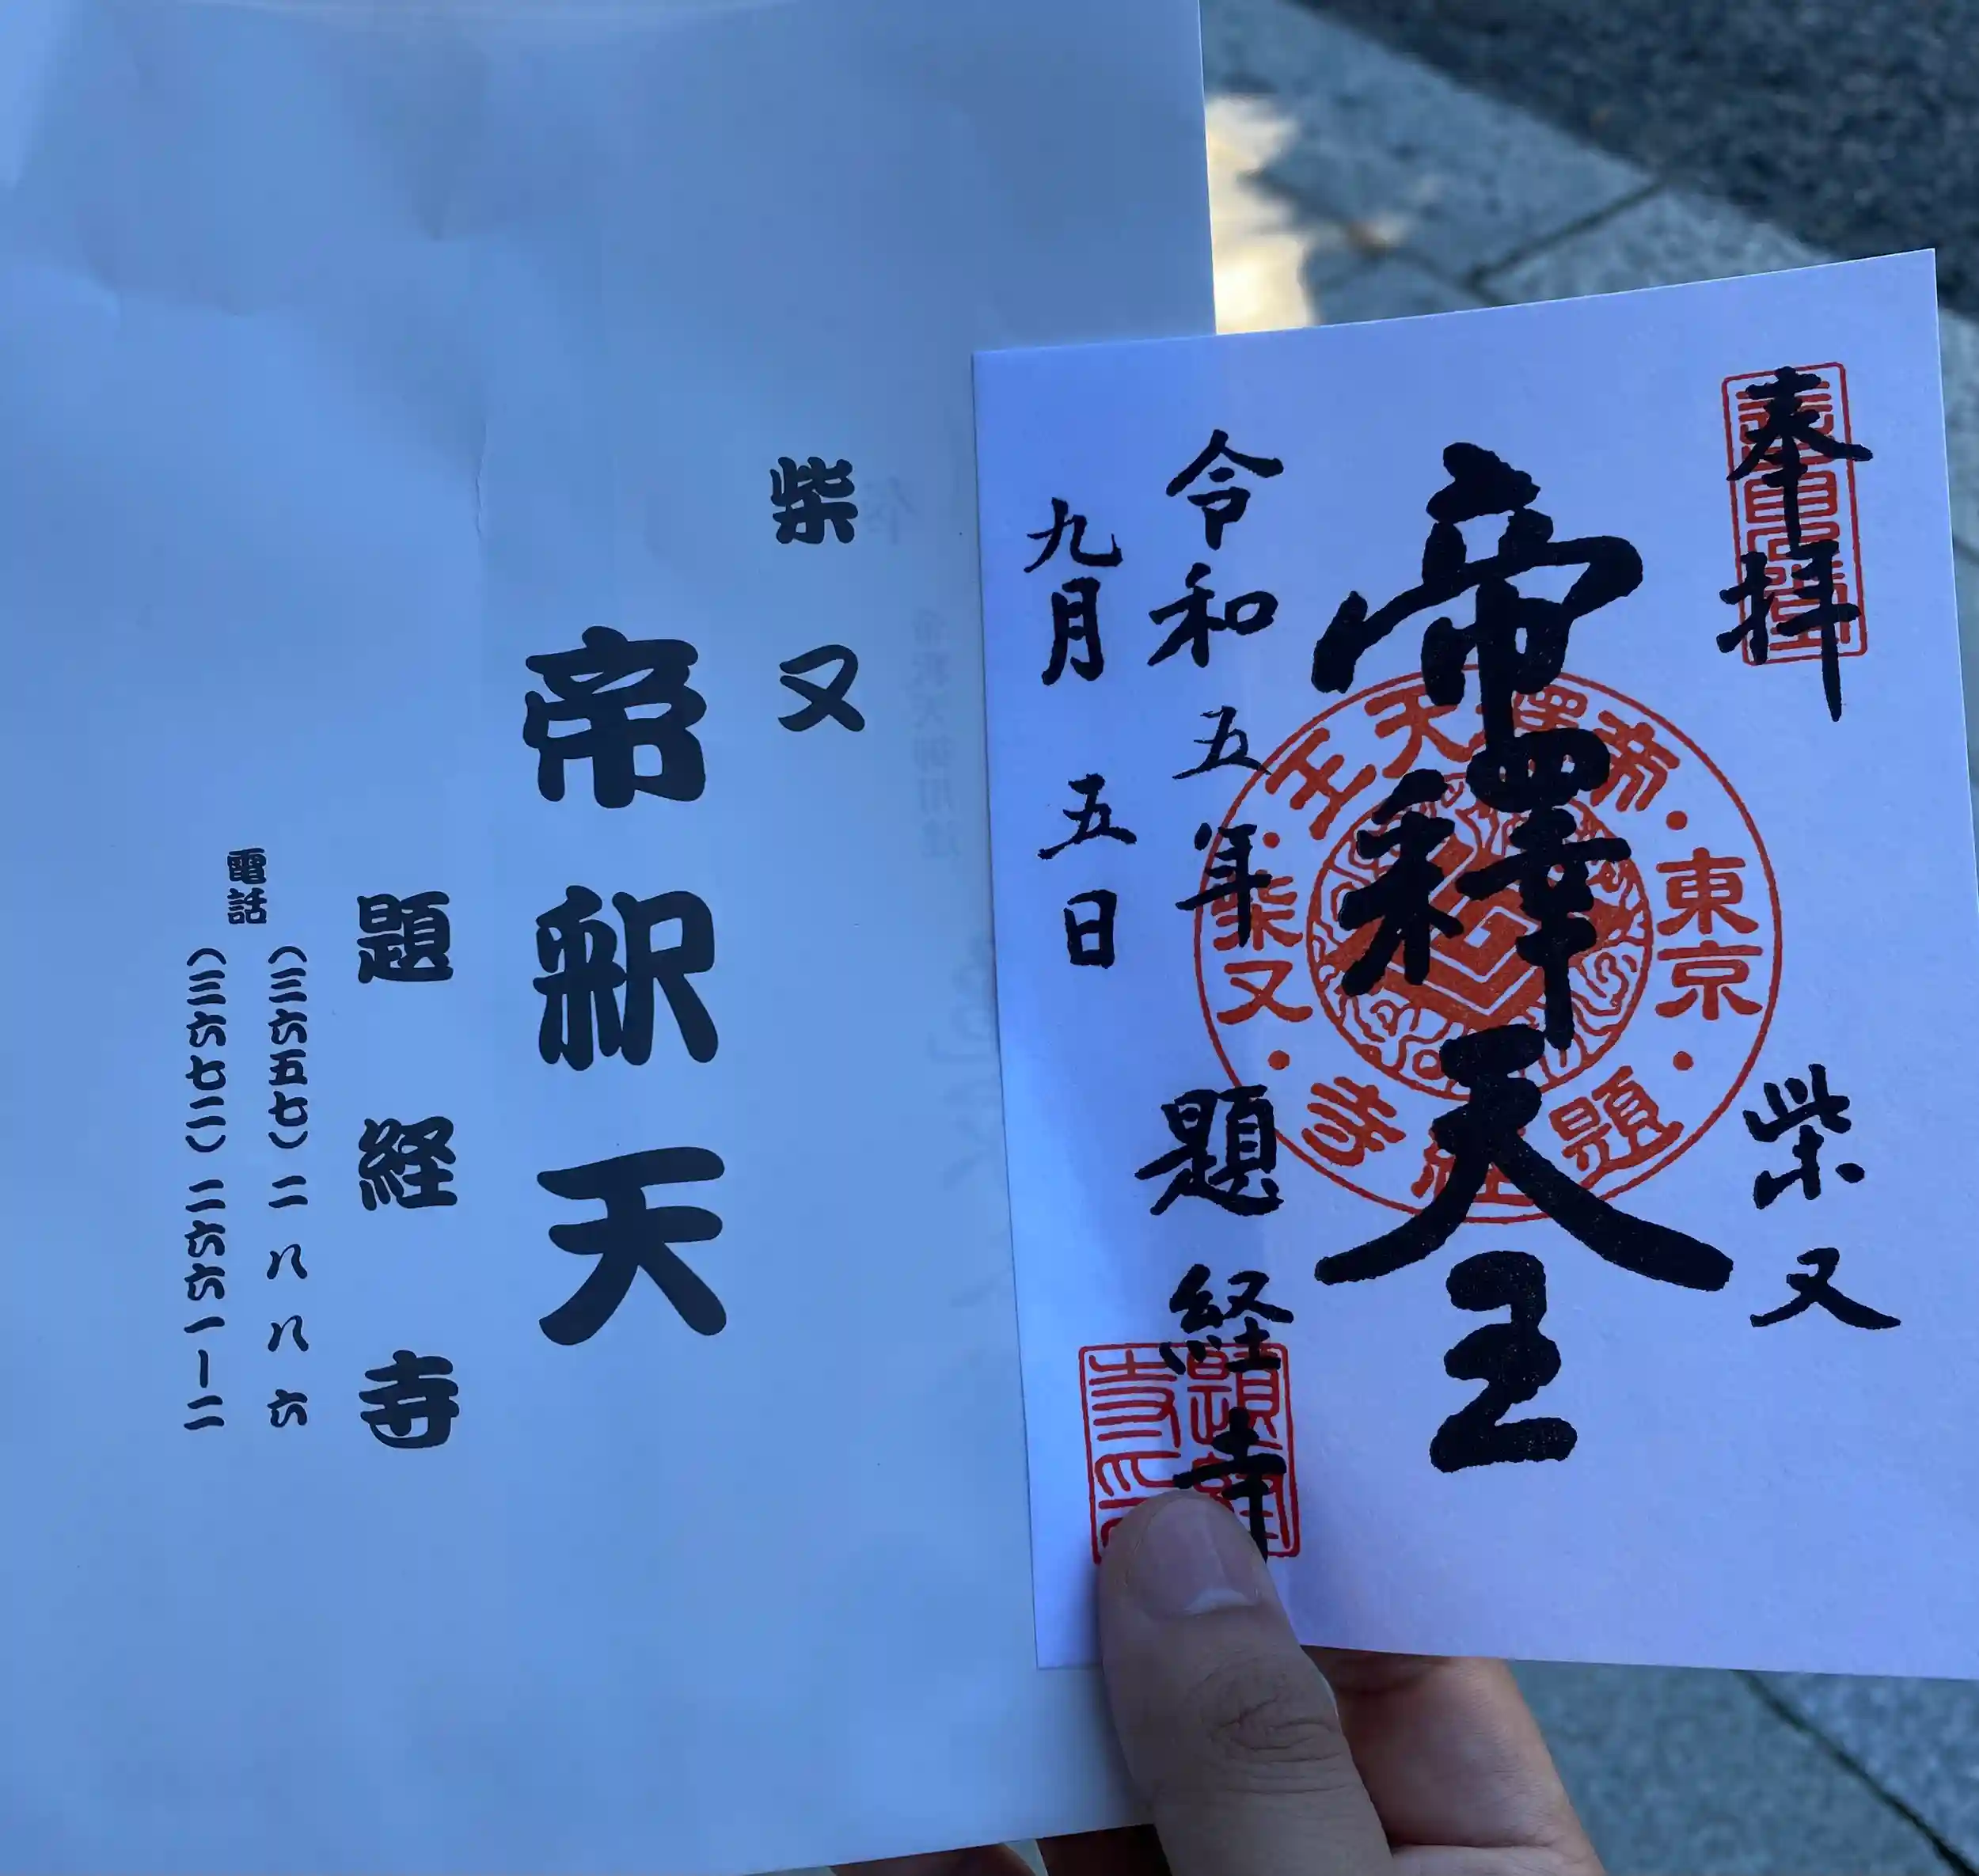 柴又
帝釈天
題経寺
電話
(三六五七)二八八六
(三六七二)二六六一ー二
奉拝
柴又
帝釋天王
令和五年
題経寺
九月五日
東京
帝釋天王
柴又
題経寺